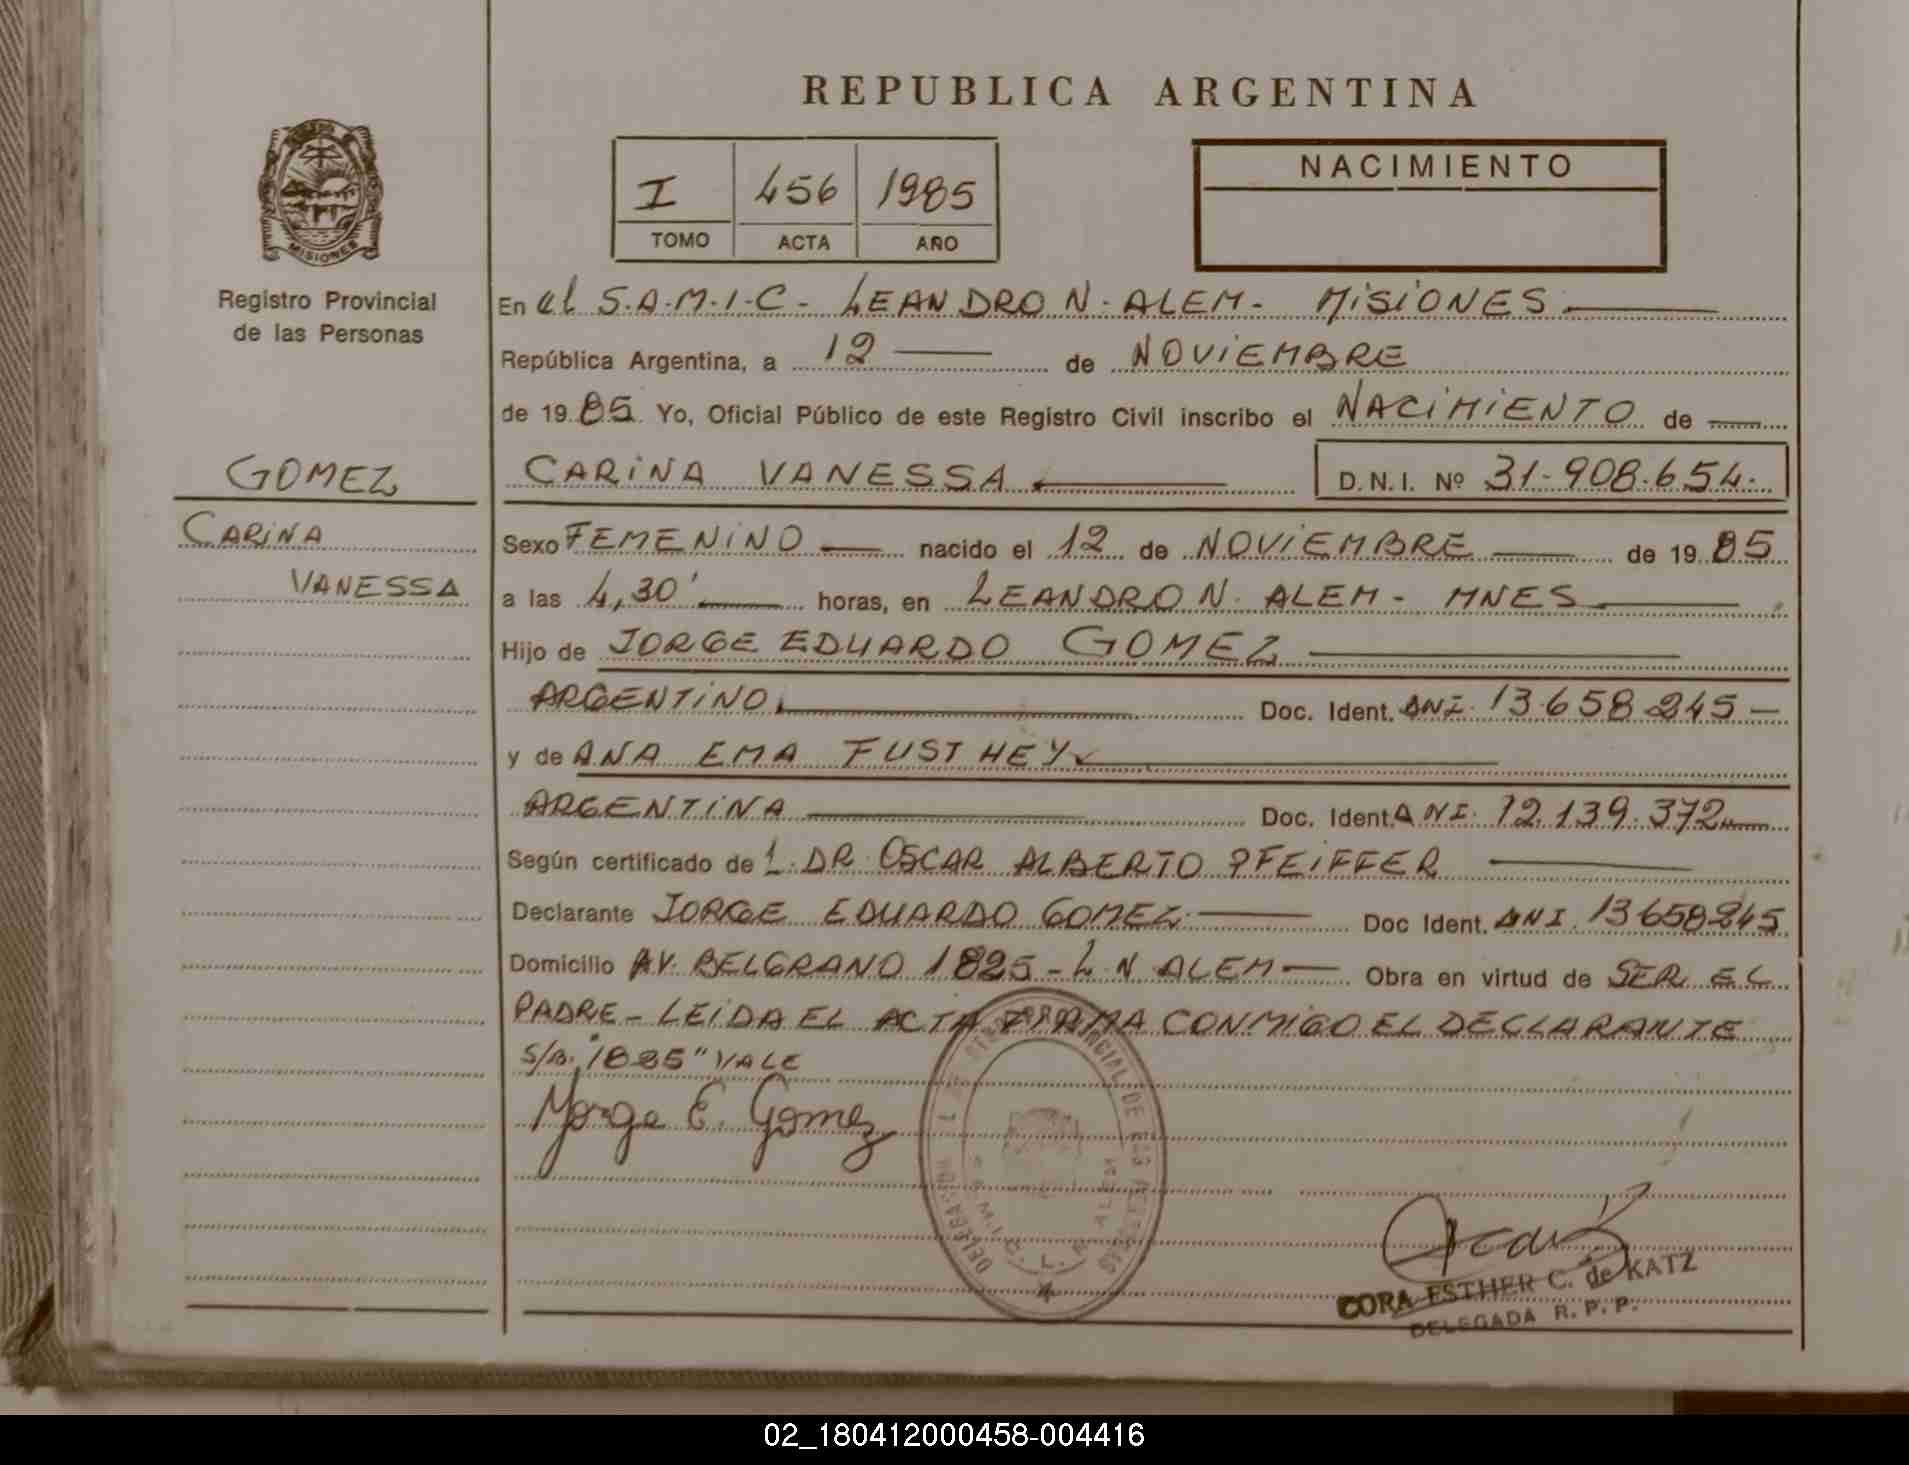 REPUBLICA ARGENTINA
MISIONES
Registro Provincial
de las Personas
I 456 1985
TOMO ACTA AÑO
NACIMIENTO
En el S.A.M.I.C- LEANDRO N. ALEM- MISIONES
República Argentina, a 12 de NOVIEMBRE
de 1985 Yo, Oficial Público de este Registro Civil inscribo el NACIMIENTO de
GOMEZ
CARINA VANESSA D.N.I. Nº 31-908.654.
CARINA
VANESSA
Sexo FEMENINO nacido el 12 de NOVIEMBRE de 1985
a las 4,30' horas, en LEANDRO N. ALEM- MNES
Hijo de JORGE EDUARDO GOMEZ
ARGENTINO Doc. Ident. DNI. 13.658.245-
y de ANA EMA FUSTHEY
ARGENTINA Doc. Ident. DNI. 12.139.372
Según certificado de L. DR. OSCAR ALBERTO PFEIFFER
Declarante JORGE EDUARDO GOMEZ Doc Ident. DNI. 13658245
Domicilio AV. BELGRANO 1825-L.N ALEM Obra en virtud de SER EL
PADRE-LEIDA EL ACTA FIRMA CONMIGO EL DECLARANTE
VALE
Jorge E. Gomez
PROVINCIAL DE LAS PERSONAS
DELEGACION
S.A.M.I.C. L. N. ALEM
CORA ESTHER C. de KATZ
DELEGADA R. P. P.
02_180412000458-004416